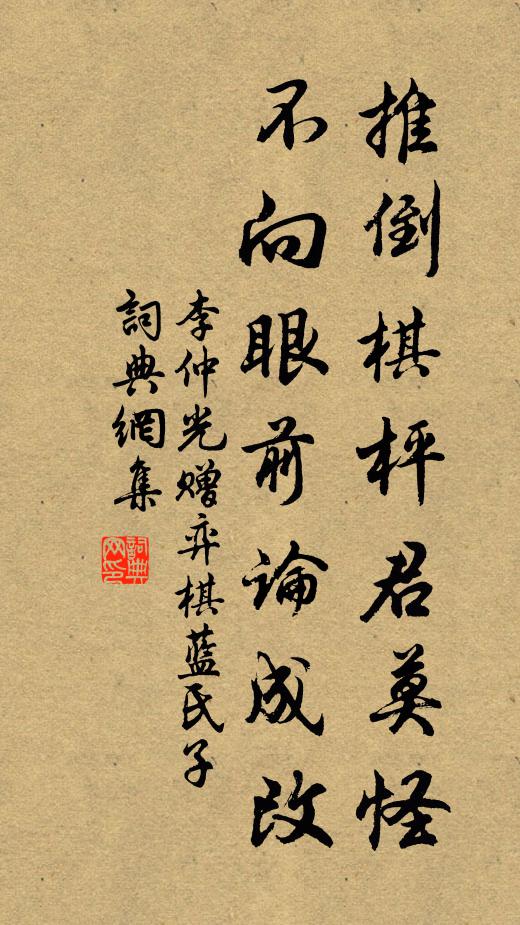 推倒棋枰君莫怪
不向眼前論成改
李仲光赠弈棋藍氏子
詞典網集
詞典網印